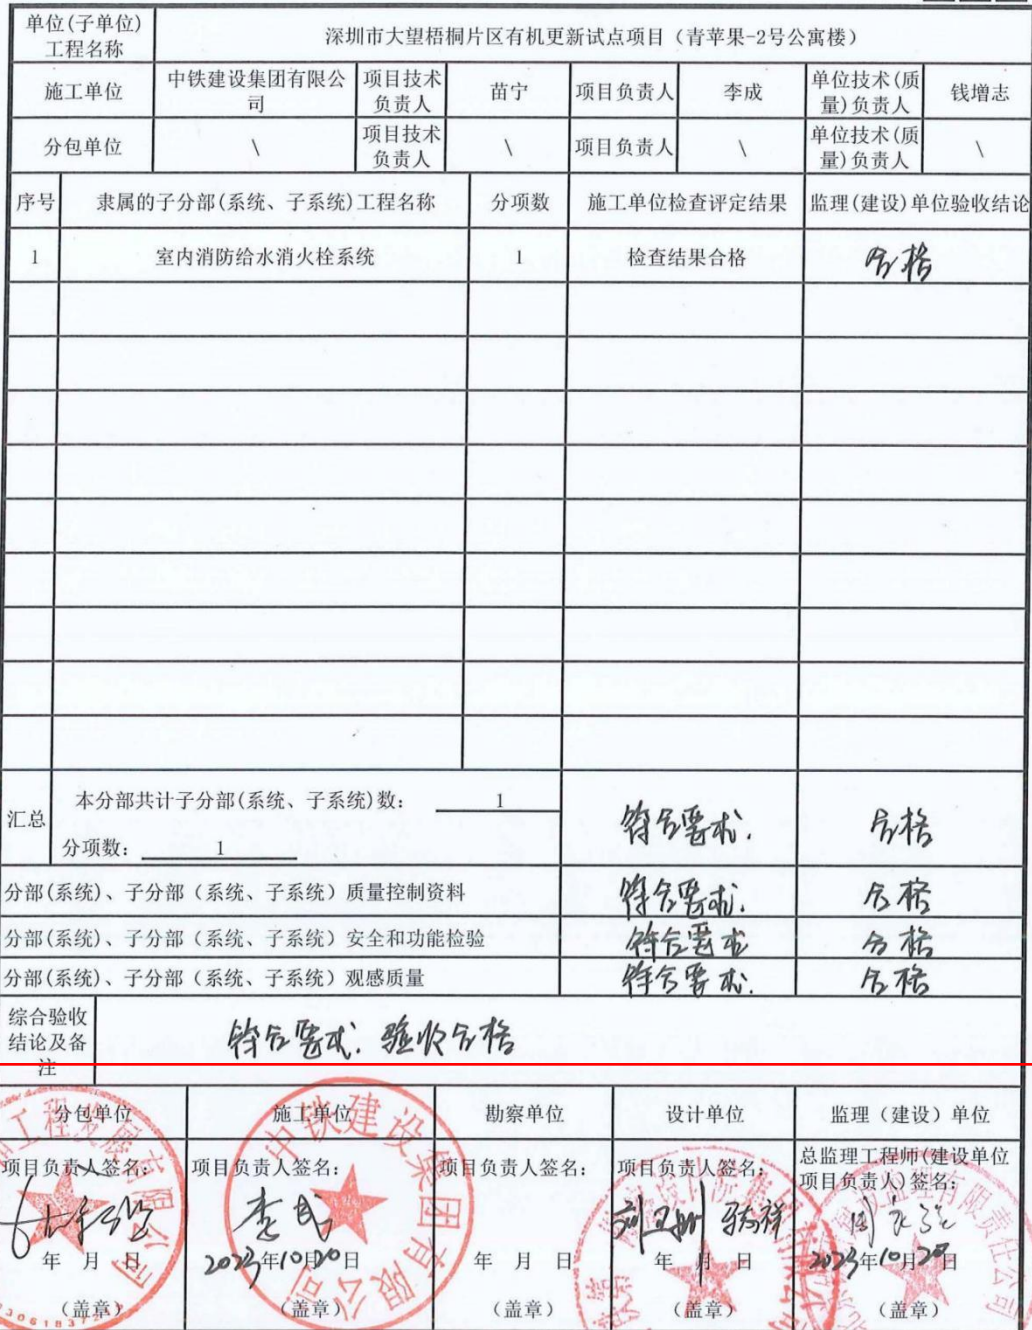 单位(子单位)
工程名称
深圳市大望梧桐片区有机更新试点项目（青苹果-2号公寓楼）
施工单位
中铁建设集团有限公
司
项目技术
负责人
苗宁
项目负责人
李成
单位技术(质
量)负责人
钱增志
分包单位
\
项目技术
负责人
\
项目负责人
\
单位技术(质
量)负责人
\
序号
隶属的子分部(系统、子系统)工程名称
分项数
施工单位检查评定结果
监理(建设)单位验收结论
1
室内消防给水消火栓系统
1
检查结果合格
合格
汇总
本分部共计子分部(系统、子系统)数： 1
分项数： 1
符合要求.
合格
分部(系统)、子分部（系统、子系统）质量控制资料
符合要求.
合格
分部(系统)、子分部（系统、子系统）安全和功能检验
符合要求
合格
分部(系统)、子分部（系统、子系统）观感质量
符合要求.
合格
综合验收
结论及备
注
符合要求. 验收合格
分包单位
施工单位
勘察单位
设计单位
监理（建设）单位
项目负责人签名：
项目负责人签名：
项目负责人签名：
项目负责人签名：
总监理工程师(建设单位
项目负责人)签名：
李成
年 月 日
2023年10月20日
年 月 日
年 月 日
2023年10月20日
（盖章）
（盖章）
（盖章）
（盖章）
（盖章）
中铁建设集团有限公司